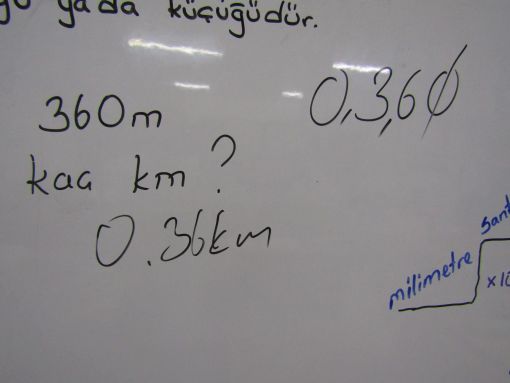 yada küçüğüdür.
360m
kaç km ?
0.36km
0,3,60
milimetre
x10